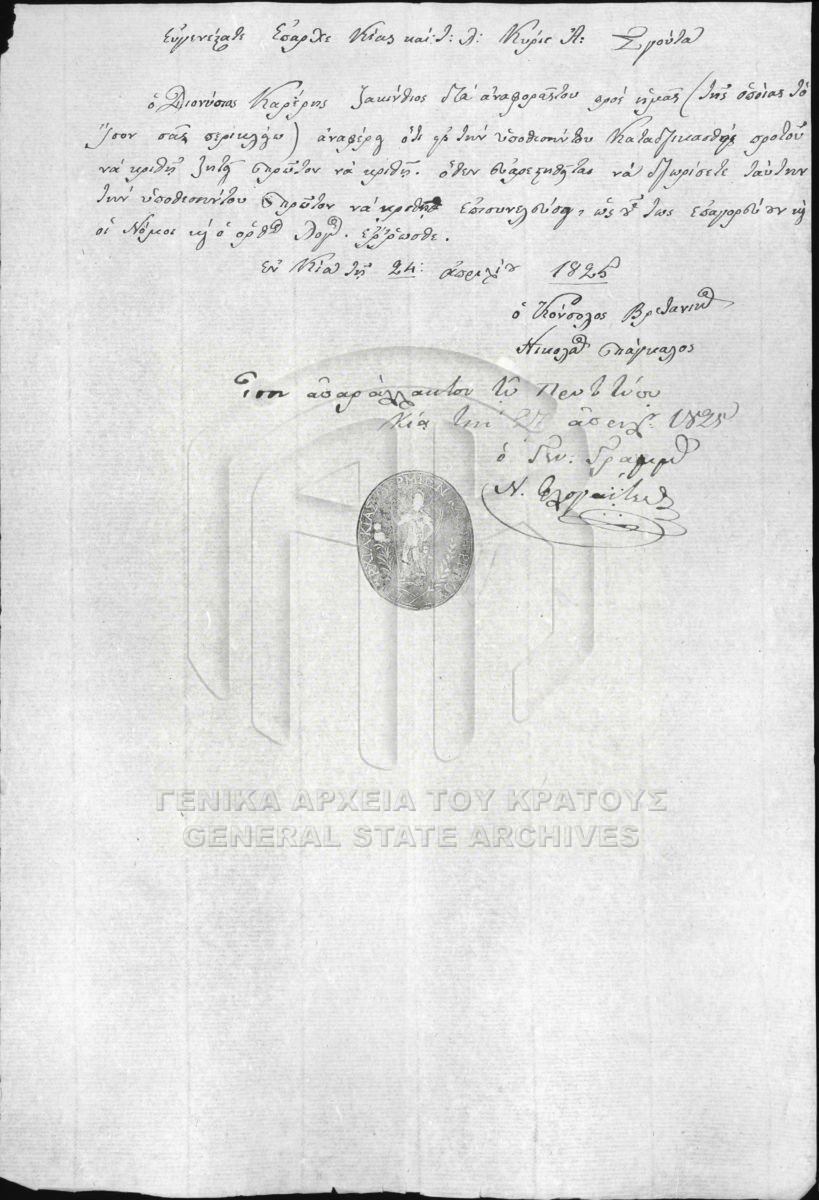 Εὐγενέςατε Ἔπαρχε Κέας καὶ τ: λ: Κύριε Α: Σ γούτα
ὁ Διονύσιος Καρέρης Ζακίνθιος διὰ ἀναφορᾶς του πρὸς ἡμᾶς (τῆς ὁποίας τὸ
ἴσον σᾶς περικλείω) ἀναφέρει ὅτι τὴν ὑπόθεσίν του κατεδικάσθη προτοῦ
νὰ κριθῆ ζητεῖ πρῶτον νὰ κριθῆ. ὅθεν νὰ διορίσετε ταύτην
τὴν ὑπόθεσίν του πρῶτον νὰ κριθῆ ὡς οὕτως ἐπαγορεύουν καὶ
οἱ Νόμοι καὶ ὁ ὀρθὸς λόγος. ἔρρωσθε.
ἐν Κέα τῆ 24: ἀπριλίου 1825
ὁ Κόνσολος Βρετανικὸς
Νικόλαος Πάγκαλος
Ἴσον ἀπαράλλακτον τοῦ Πρωττύπου
Κέα τὴν 27 ἀπριλ: 1825
ὁ Γεν: Γραμμ
Ν.
ΓΕΝΙΚΑ ΑΡΧΕΙΑ ΤΟΥ ΚΡΑΤΟΥΣ
GENERAL STATE ARCHIVES